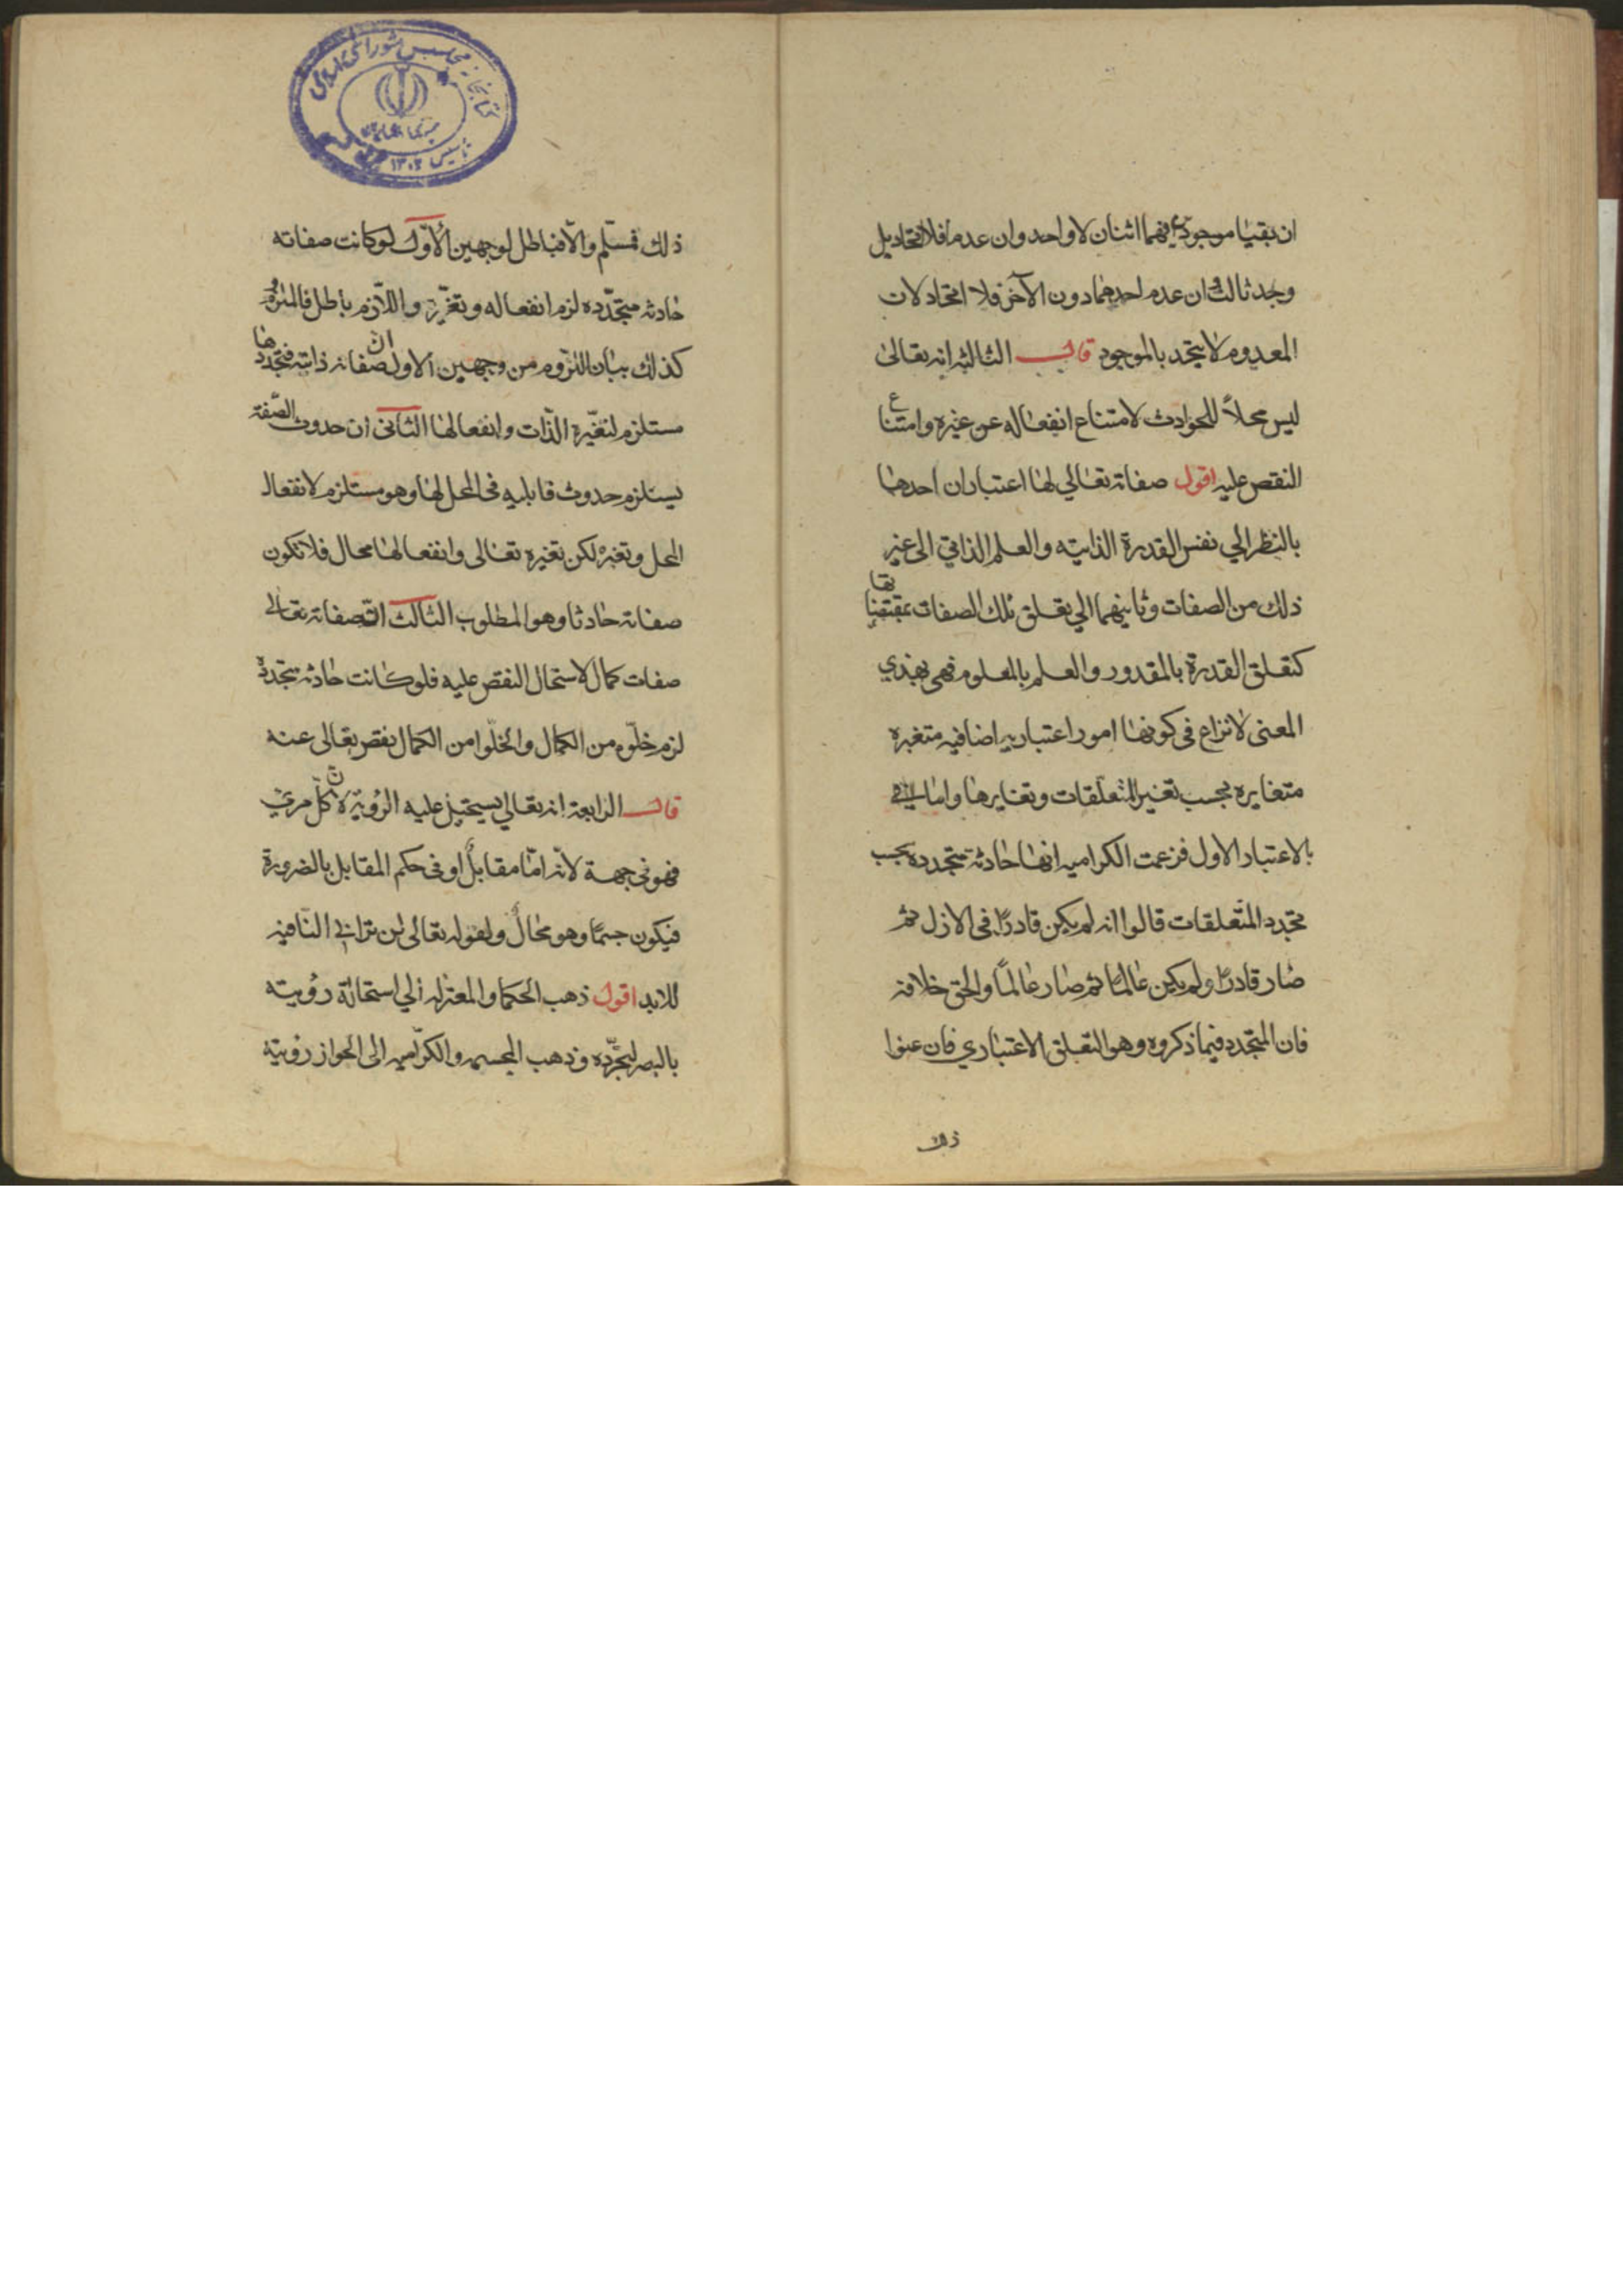 ان بقيا موجودين فهما اثنان لا واحد وان عدما فلا اتحاد بل
وجد ثالث وان عدم احدهما دون الآخر فلا اتحاد لان
المعدوم لا يتحد بالموجود قال الثالثه انه تعالى
ليس محلاً للحوادث لامتناع انفعاله عن غيره وامتناع
النقص عليه اقول صفاته تعالي لها اعتباران احدهما
بالنظر الي نفس القدرة الذاتيه والعلم الذاتي الى غير
ذلك من الصفات وثانيهما الي تعلق تلك الصفات بمقتضياتها
كتعلق القدرة بالمقدور والعلم بالمعلوم فهي بهذي
المعنى لا نزاع في كونها امور اعتباريه اضافيه متغيره
متغايره بحسب تغير المتعلقات وتغايرها واما
بالاعتبار الاول فزعمت الكراميه انها حادثة متجدده بحسب
تجدد المتعلقات قالوا انه لم يكن قادرًا في الازل ثم
صار قادرًا ولم يكن عالمًا ثم صار عالمًا والحق خلافه
فان المتجدد فيما ذكروه وهو التعلق الاعتباري فان عنوا
ذلك
كتابخانه مجلس شورای اسلامی
تاسیس ١٣٠٢
ذلك فمسلّم والّا فباطل لوجهين الأوّل لو كانت صفاته
حادثه متجدّده لزم انفعاله وتغيّره واللّازم باطل فالملزوم
كذلك بيان اللزوم من وجهين الاول انّ صفاته ذاتيه فتجددها
مستلزم لتغيّر الذّات وانفعالها الثاني ان حدوث الصّفة
يستلزم حدوث قابليه في المحل لها وهو مستلزم لانفعال
المحل وتغيره لكن تغيره تعالى وانفعالها محال فلا تكون
صفاته حادثا وهو المطلوب الثالث انّ صفاته تعالى
صفات كمال لاستحال النقص عليه فلو كانت حادثه متجدده
لزم خلّوه من الكمال والخلّوا من الكمال نقص تعالى عنه
قال الرابعة انه تعالي يستحيل عليه الرؤية لانّ كلّ مرئي
فهو في جهة لانّه امّا مقابلٌ او في حكم المقابل بالضرورة
فيكون جسمًا وهو محالٌ ولقوله تعالى لن تراني النّافيه
للابد اقول ذهب الحكما والمعتزله الي استحالة رؤيته
بالبصر لتجرّده وذهب المجسمه والكرّاميه الى الجواز رؤيته